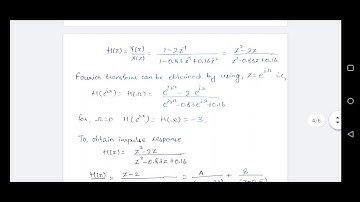 H(z) = Y(z)/X(z) = 1-2z⁻¹ / 1-0.83z⁻¹+0.16z⁻² = z²-2z / z²-0.83z+0.16
Fourier transform can be obtained by using, z=e^{jΩ} i.e,
H(e^{jΩ}) = H(Ω) = e^{j2Ω} - 2 e^{jΩ} / e^{j2Ω} - 0.83 e^{jΩ} + 0.16
for, Ω=0 H(e^{jΩ}) = H(Ω) = -3.
To obtain impulse response
H(z) = z²-2z / z²-0.83z+0.16
H(z) = z-2 = A + B
4/6